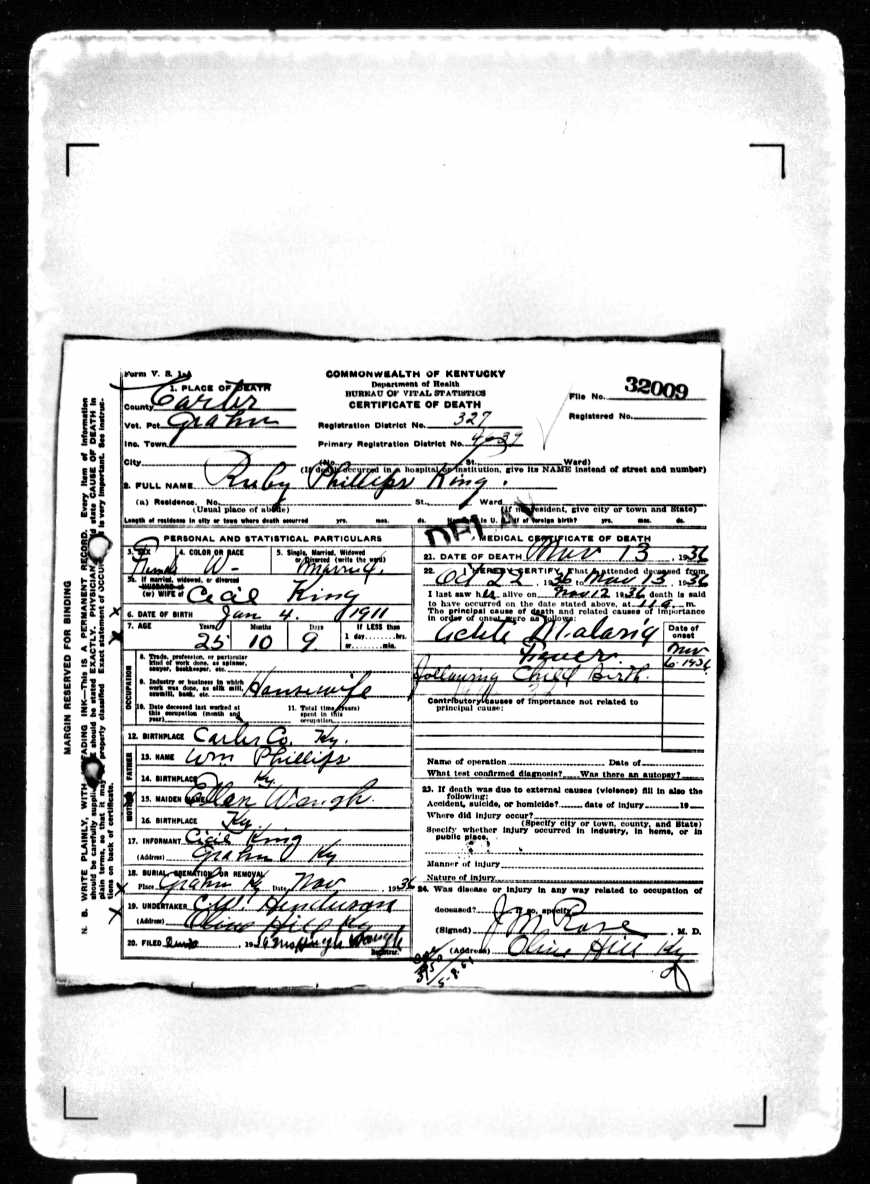 Form V. S. 1-A
COMMONWEALTH OF KENTUCKY
Department of Health
BUREAU OF VITAL STATISTICS
CERTIFICATE OF DEATH
File No. 32009
Registered No.
1. PLACE OF DEATH
County Carter
Vot. Pct. Grahn
Inc. Town
Registration District No. 327
Primary Registration District No.
City (No. St. Ward)
(If death occurred in a hospital or institution, give its NAME instead of street and number)
2. FULL NAME Ruby Phillips King.
(a) Residence. No. St., Ward
(Usual place of abode) (If nonresident, give city or town and State)
Length of residence in city or town where death occurred yrs. mos. ds. How long in U. S. if of foreign birth? yrs. mos. ds.
DELAY
PERSONAL AND STATISTICAL PARTICULARS
3. SEX 4. COLOR OR RACE 5. Single, Married, Widowed or Divorced (write the word)
Female W- Married.
5a. If married, widowed, or divorced
HUSBAND of
(or) WIFE of Cecil King
6. DATE OF BIRTH Jan 4. 1911
7. AGE Years Months Days If LESS than
25 10 9 1 day hrs.
or min.
OCCUPATION
8. Trade, profession, or particular kind of work done, as spinner, sawyer, bookkeeper, etc.
9. Industry or business in which work was done, as silk mill, sawmill, bank, etc. Housewife
10. Date deceased last worked at this occupation (month and year) 11. Total time (years) spent in this occupation
12. BIRTHPLACE Carter Co. Ky.
FATHER
13. NAME Wm Phillips
14. BIRTHPLACE Ky.
MOTHER
15. MAIDEN NAME Ellan Waugh.
16. BIRTHPLACE Ky.
17. INFORMANT Cecil King
(Address) Grahn Ky
18. BURIAL, CREMATION OR REMOVAL
Place Grahn Ky Date Nov 1936
19. UNDERTAKER Henderson
(Address) Olive Hill Ky
20. FILED 19 Waugh
Registrar.
MEDICAL CERTIFICATE OF DEATH
21. DATE OF DEATH Nov 13, 1936
22. I HEREBY CERTIFY, That I attended deceased from
Oct 22, 1936 to Nov 13, 1936
I last saw her alive on Nov 12 1936 death is said
to have occurred on the date stated above, at 11 a. m.
The principal cause of death and related causes of importance
in order of onset were as follows:
Date of onset
Acute Malaria
Fever.
Nov 6-1936
following Child Birth.
Contributory causes of importance not related to
principal cause:
Name of operation Date of
What test confirmed diagnosis? Was there an autopsy?
23. If death was due to external causes (violence) fill in also the
following:
Accident, suicide, or homicide? date of injury 19
Where did injury occur?
(Specify city or town, county, and State)
Specify whether injury occurred in industry, in home, or in
public place.
Manner of injury
Nature of injury
24. Was disease or injury in any way related to occupation of
deceased? If so, specify
(Signed) J M Rose, M. D.
(Address) Olive Hill Ky
MARGIN RESERVED FOR BINDING